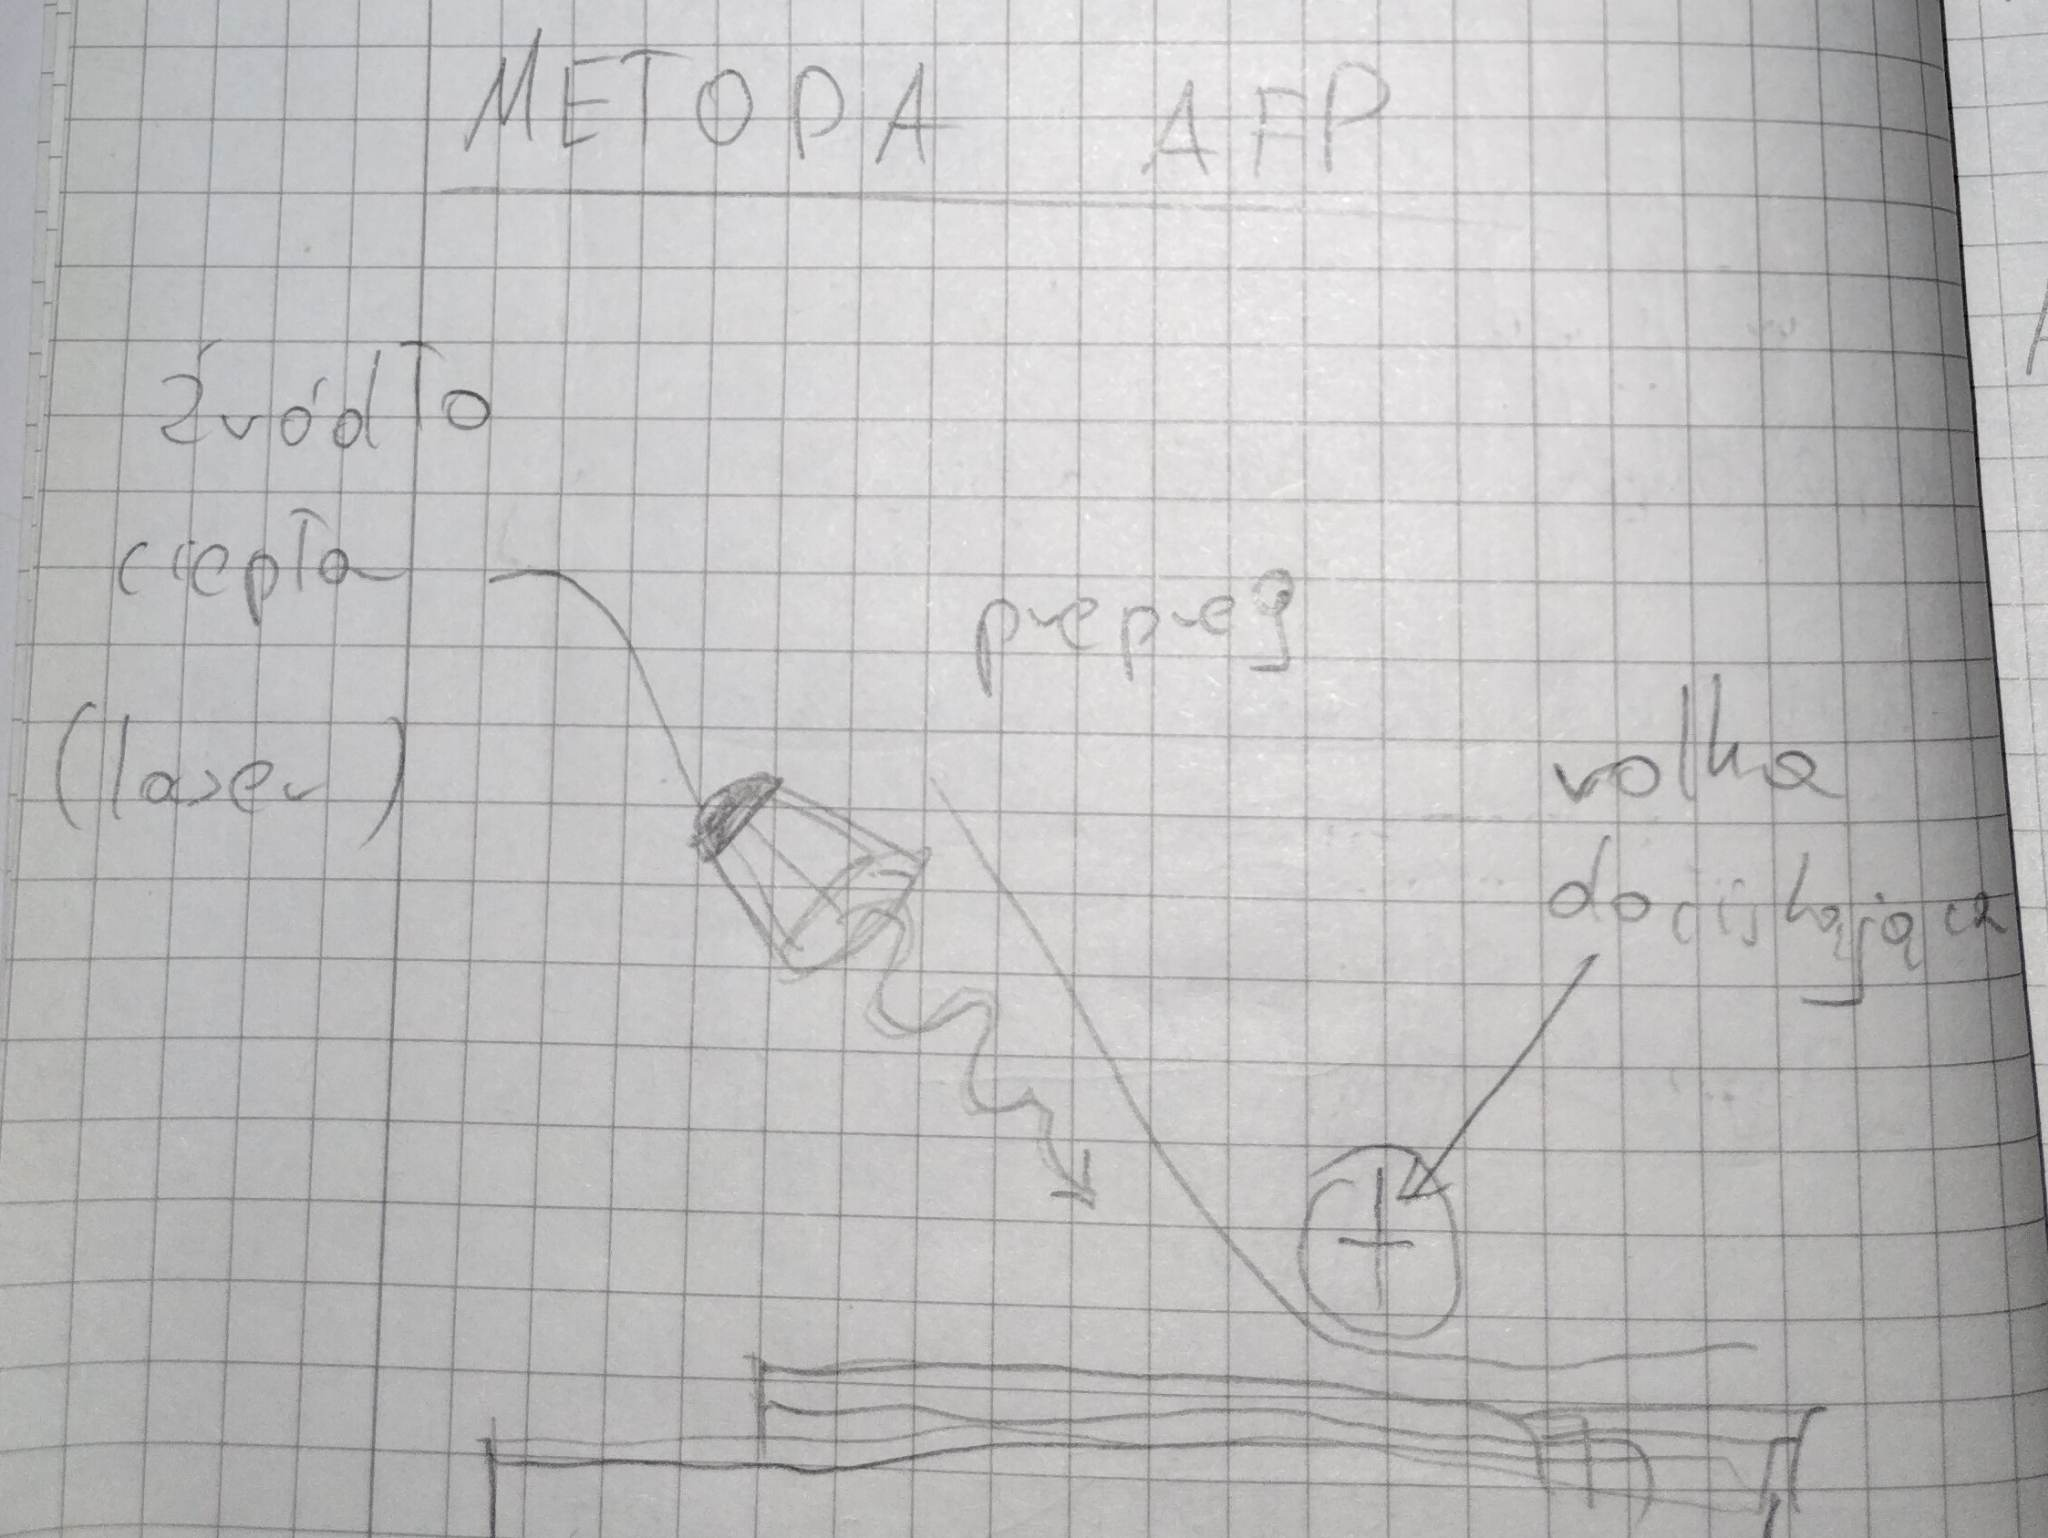 METODA AFP
źródło
ciepła
(laser)
prepreg
rolka
dociskająca